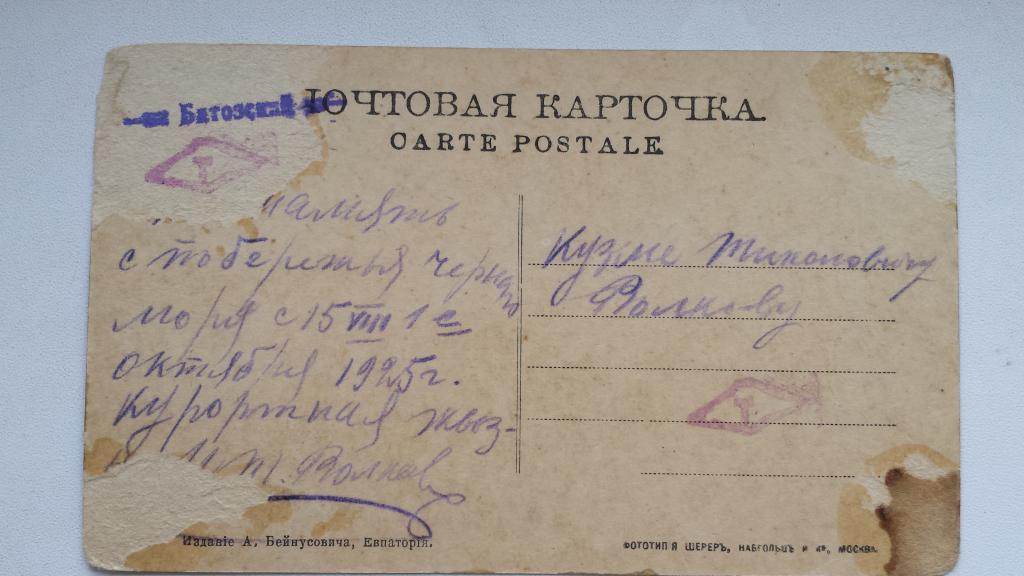 ПОЧТОВАЯ КАРТОЧКА.
CARTE POSTALE
память
с побережья Черного
моря с 15 VIII 1е
октября 1925 г.
Курортная
Волков
Кузме Тихоновичу
Волкову
Т
Т
Изданіе А. Бейнусовича, Евпаторія.
ФОТОТИПІЯ ШЕРЕРЪ, НАБГОЛЬЦЪ И Кº, МОСКВА.